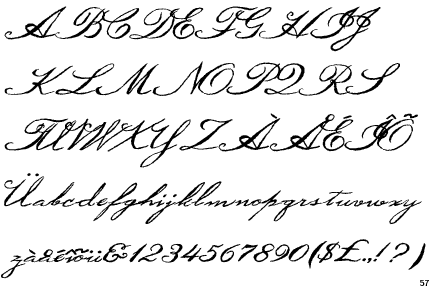 ABCDEFGHIJ
KLMNOPQRS
TUVWXYZÀÅÉÎÕ
Üabcdefghijklmnopqrstuvwxy
zàåéîõü&1234567890($£.,!?)
57